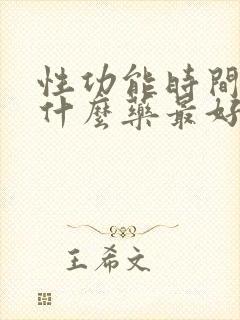 性功能時間
什麼藥最好
王希文